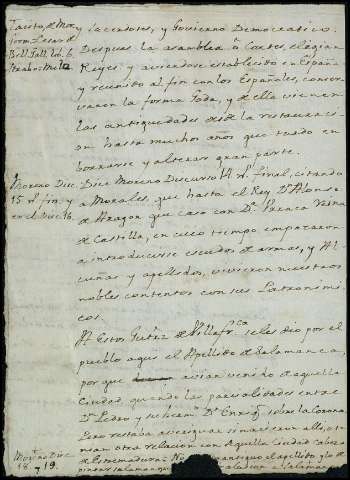 Tacito, de Mor.
form. Cesar de
Bell. Gall. lib. 6.
y Sacerdotes, y Govierno Democratico.
Despues la asamblea, ò Cortes, elegian
Reyes y aviendose establecido en España
y reunido al fin con los Españoles, conser
varon la forma Goda, y de ella vienen
las antiguedades desde la restauraci
on hasta muchos años que tardo en
borrarse y alterar gran parte.
Moreno Disc.
15. al fin. y
en el Disc. 16.
Dice Moreno Discurso 14. al final, citando
a Morales, que hasta el Rey Dn. Alonso
de Aragon que caso con Da. Vrraca Reina
de Castilla, en cuio tiempo empezaron
a introducirse escudos de armas, y Al
cuñas y apellidos, vivieron nuestros
nobles contentos con sus Patronimi
cos.
A Estos de Villafrca. se les dio por el
pueblo aqui el Apellido de Salamanca,
por que avian venido de aquella
Ciudad, quando las parcialidades entre
Dn. Pedro y su hermo. Dn. Enriq. sobre la Corona
otra relacion con Aquella Ciudad cabeza
de Estremadura: No antiguo el apellido, y lo de
Mono. Disc.
18. y 19.